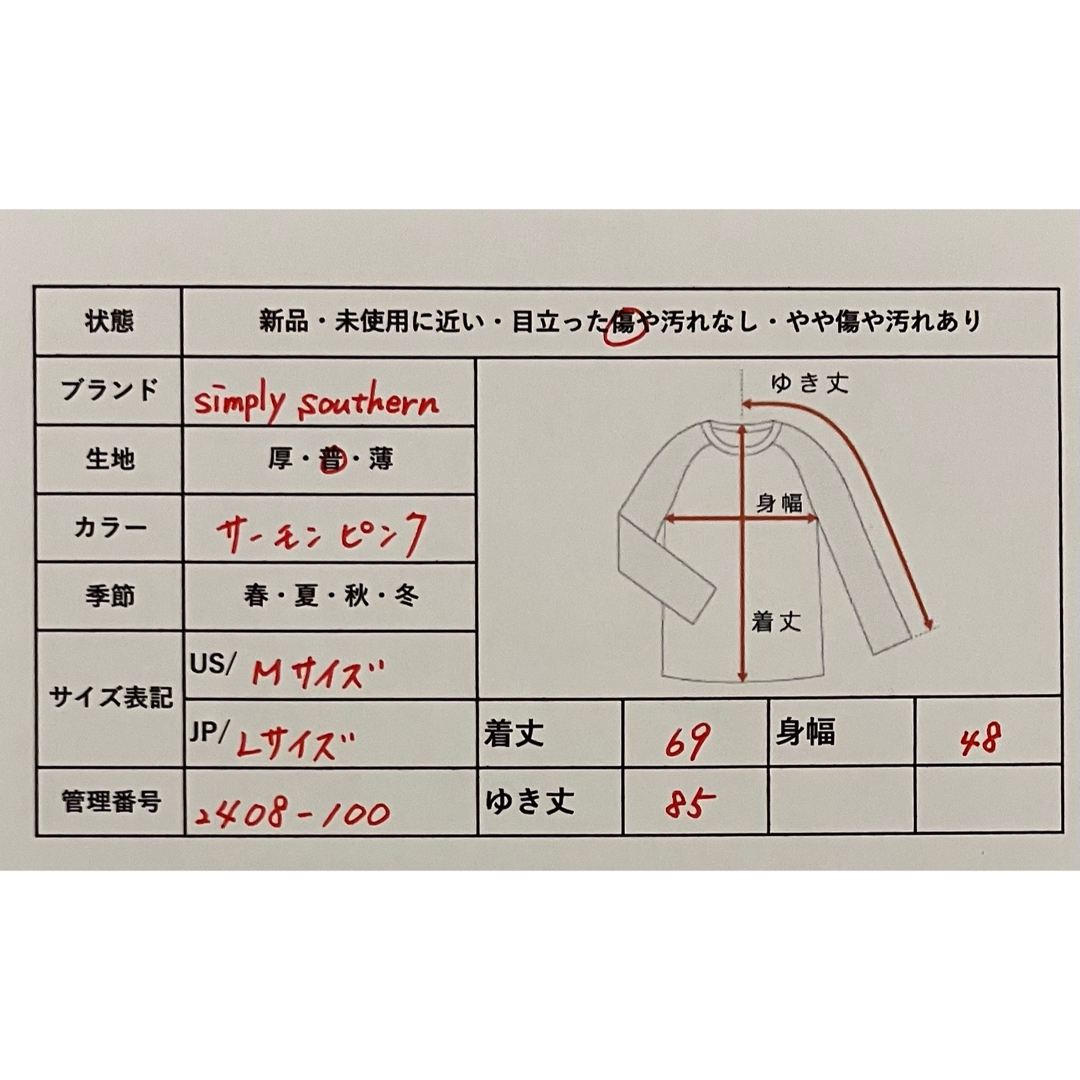 状態 新品・未使用に近い・目立った傷や汚れなし・やや傷や汚れあり
ブランド simply southern
生地 厚・普・薄
カラー サーモンピンク
季節 春・夏・秋・冬
サイズ表記
US/ Mサイズ
JP/ Lサイズ
管理番号 2408-100
ゆき丈
身幅
着丈
着丈 69 身幅 48
ゆき丈 85